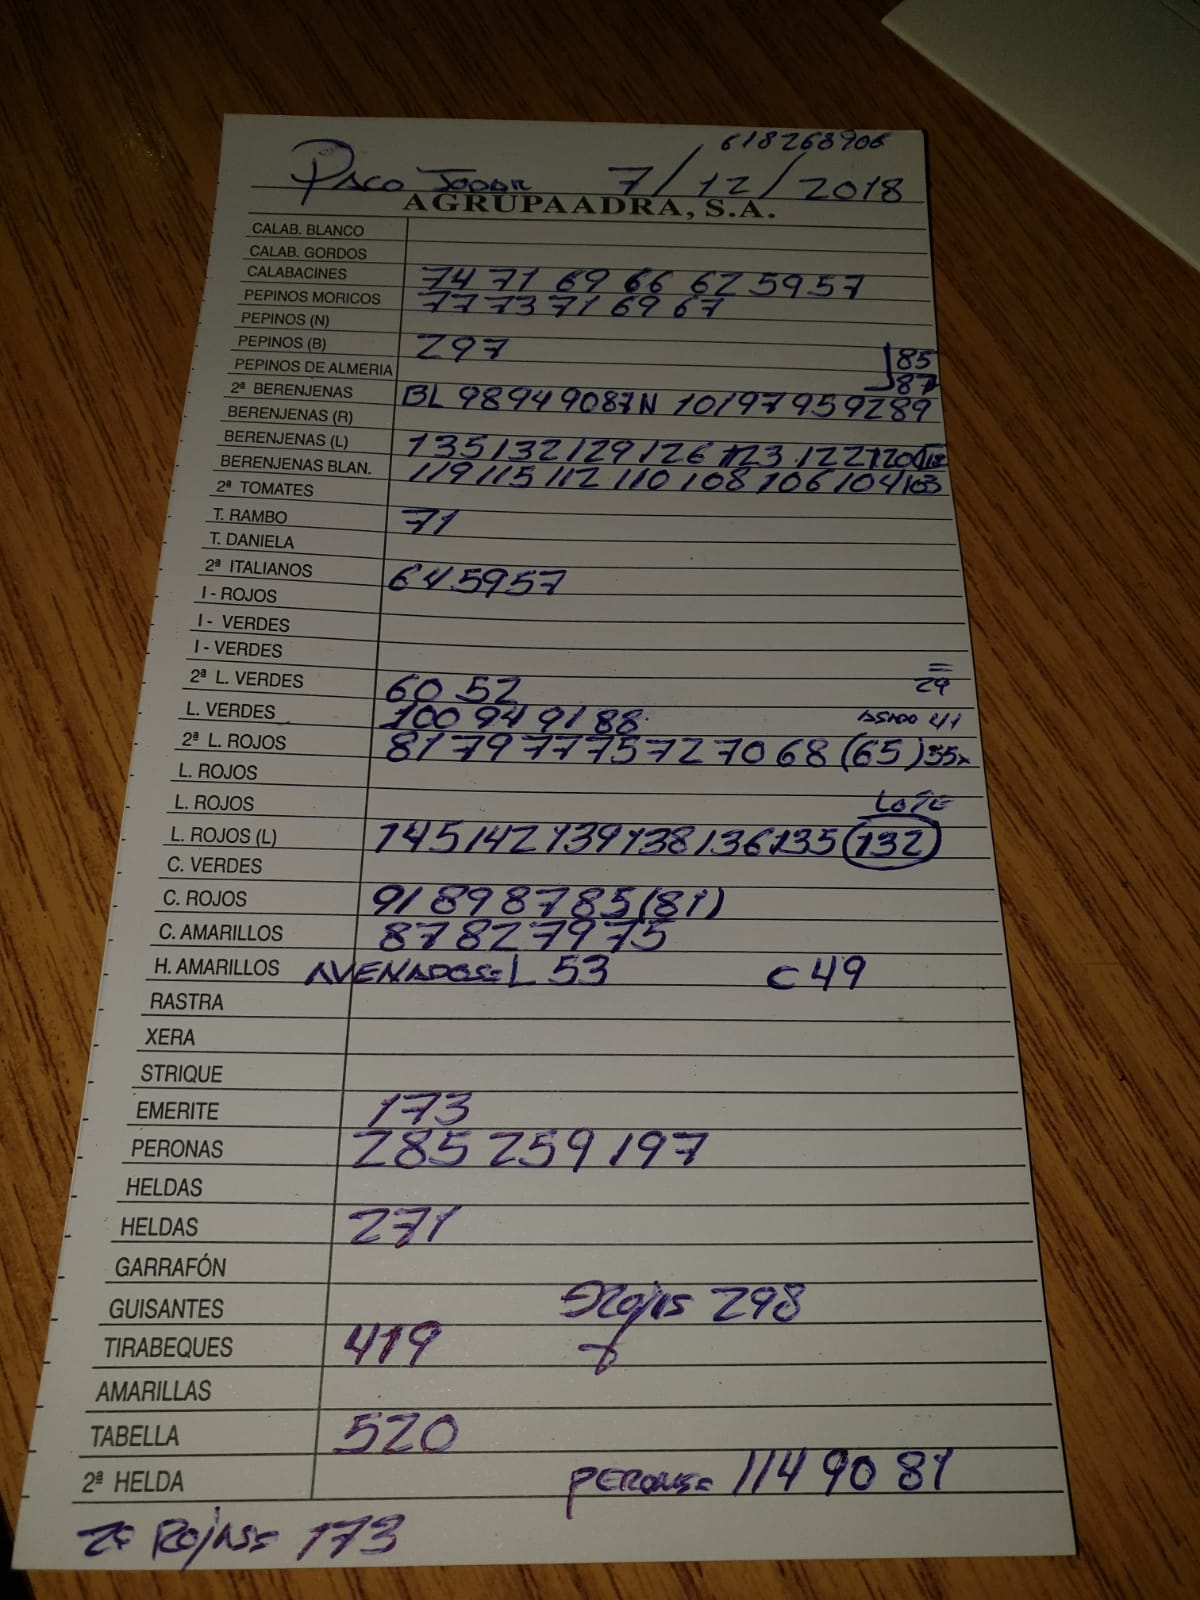 618268906
Paco Jodar 7/12/2018
AGRUPAADRA, S.A.
CALAB. BLANCO
CALAB. GORDOS
CALABACINES 74 71 69 66 62 59 57
PEPINOS MORICOS 77 73 71 69 67
PEPINOS (N)
PEPINOS (B) 297 85
PEPINOS DE ALMERIA 87
2ª BERENJENAS BL 98 94 90 87 N 101 97 95 92 89
BERENJENAS (R)
BERENJENAS (L) 135 132 129 126 123 122 120
BERENJENAS BLAN. 119 115 112 110 108 106 104 103
2ª TOMATES
T. RAMBO 71
T. DANIELA
2ª ITALIANOS 64 59 57
I - ROJOS
I - VERDES
I - VERDES
2ª L. VERDES 60 52 = 29
L. VERDES 100 94 91 88 ASADO 41
2ª L. ROJOS 81 79 77 75 72 70 68 (65) 55x
L. ROJOS
L. ROJOS LOTE
L. ROJOS (L) 145 142 139 138 136 135 132
C. VERDES
C. ROJOS 91 89 87 85 (81)
C. AMARILLOS 87 82 79 75
H. AMARILLOS AVENADOS= L 53 C 49
RASTRA
XERA
STRIQUE
EMERITE 173
PERONAS 285 259 197
HELDAS
HELDAS 271
GARRAFÓN
GUISANTES Rojas 298
TIRABEQUES 419
AMARILLAS
TABELLA 520
2ª HELDA PERONAS= 114 90 81
2ª ROJAS= 173